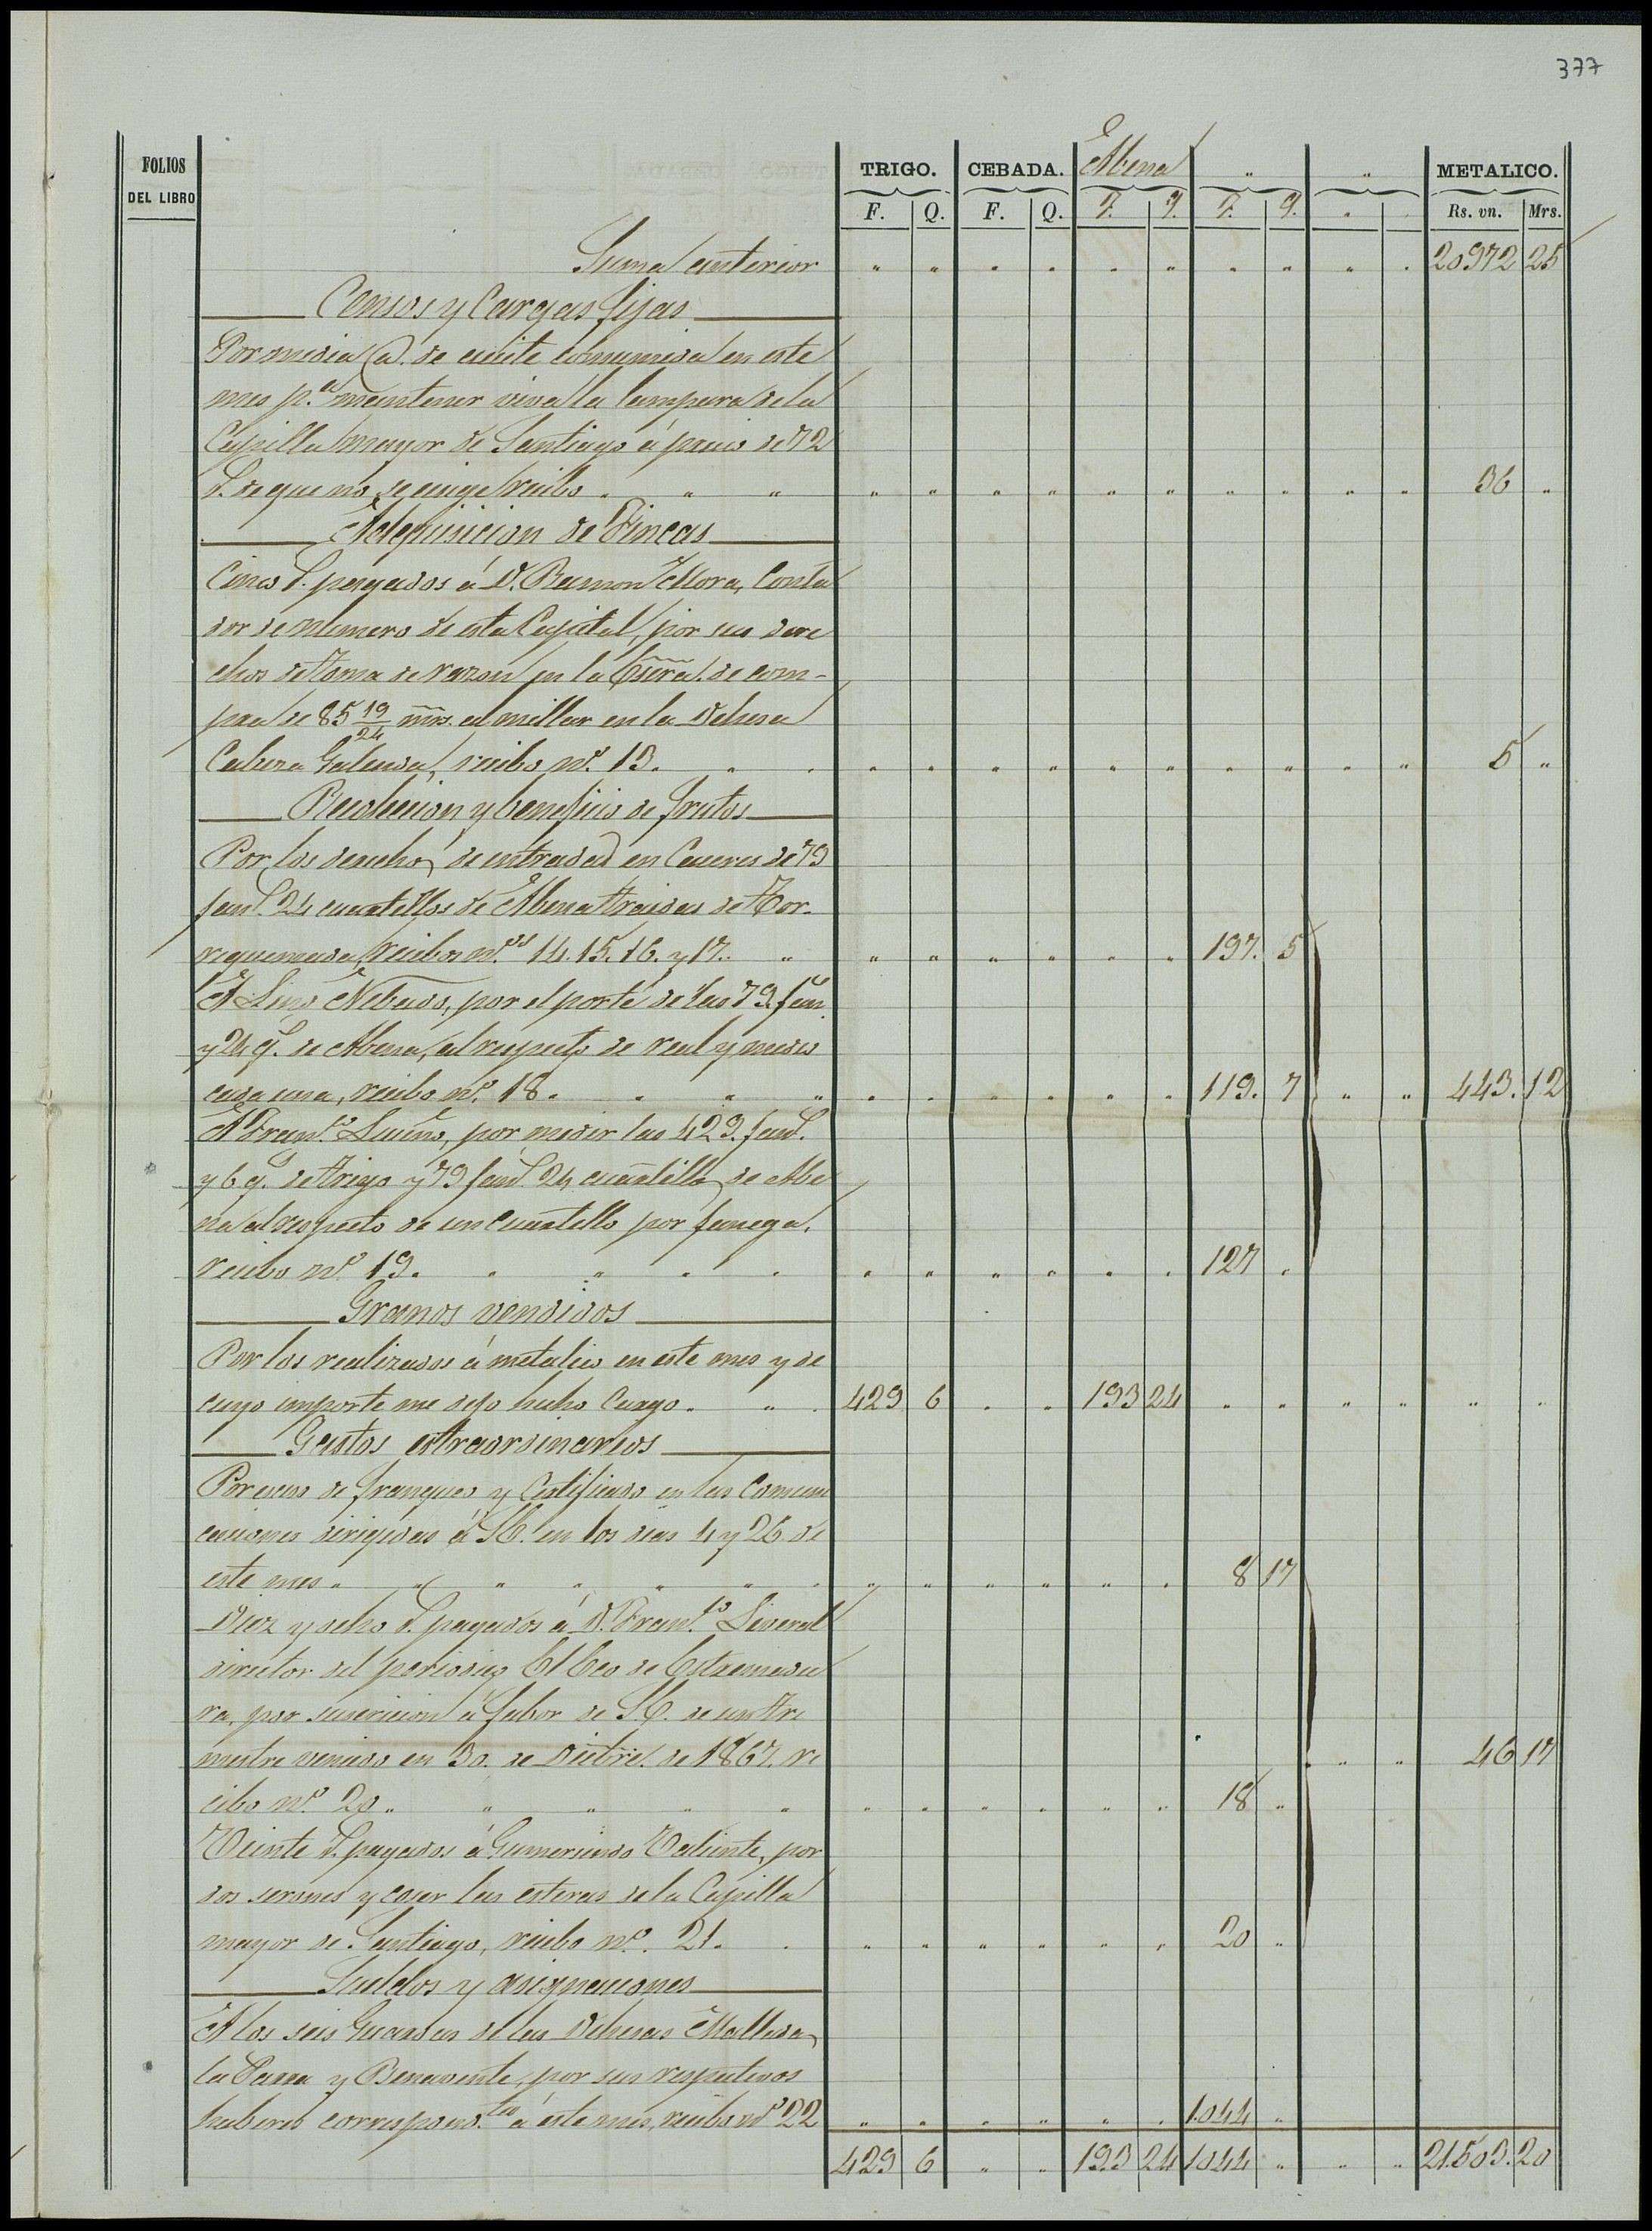 377
FOLIOS DEL LIBRO
TRIGO. CEBADA. Abena " " METALICO.
F. Q. F. Q. F. Q. F. Q. " " Rs. vn. Mrs.
Suma anterior " " " " " " " " " " 20972 25
Censos y Cargas fijas
Por media @. de aceite consumida en este
mes p.a mantener viva la lampara de la
Capilla mayor de Santiago á precio de 72
r. de que no se exige recibo " " " " " " " " " " " " " 36 "
Adquisicion de Fincas
Cinco r. pagados á D. Ramon Mora, Conta
dor de Numero de esta Capital, por sus dere
chos de toma de razon en la Escra. de com-
pra de 85 19/24 mrs. al millar en la Dehesa
Cabeza Galeusa, recibo nº. 13. " " " " " " " " " " " " 5 "
Recoleccion y beneficio de frutos
Por los derechos de entrada en Caceres de 79
fans. 24 cuartillos de Abena traidas de Tor-
requemada, recibos nos. 14. 15. 16. y 17. " " " " " " " 197. 5
A Lino Nebado, por el porte de las 79. fan.
y 24 q. de Abena, al respecto de real y medio
cada una, recibo nº. 18. " " " " " " " " " 119. 7 " " 443. 12
A Franco. Luceño, por medir las 429. fans.
y 6 q. de trigo y 79 fans. 24 cuartillos de Abe
na al respecto de un cuartillo por fanega.
recibo nº. 19. " " " " " " " " " " 127 "
Granos vendidos
Por los realizados á metalico en este mes y de
cuyo importe me dejo hecho Cargo. " " 429 6 " " 193 24 " " " " " "
Gastos estraordinarios
Por exceso de franqueo y Certificado en las Comuni
caciones dirigidas á S.E. en los dias 4 y 26 de
este mes " " " " " " " " " " " " " 8 17
Diez y ocho r. pagados á D. Franco.
director del periodico El Eco de Estremadu
ra, por suscricion á fabor de S.E. de un tri
mestre vencido en 30. de Dicbre. de 1867. re " " 46 17
cibo nº. 20 " " " " " " " " " " " 18 "
Veinte r. pagados á Gumersindo Valiente, por
dos serones y coser las esteras de la Capilla
mayor de Santiago, recibo nº. 21. " " " " " " " 20 "
Sueldos y asignaciones
A los seis Guardas de las Dehesas Mallada,
la Parra y Benavente, por sus respectivos
haberes correspond.tes á este mes, recibo nº. 22 " " " " " " 1.044 "
429 6 " " 193 24 1044 " " " 21.503. 20